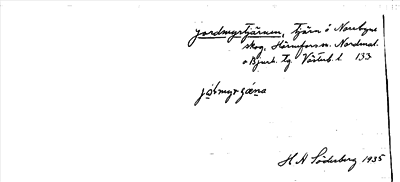 Jordmyrtjärnen, tjärn å Norrbyns
skog, Hörneforss. Nordmal.
o Bjurh. tg. Västerb. l. 133
jo̱lmyrɟä́na
H A Söderberg 1935